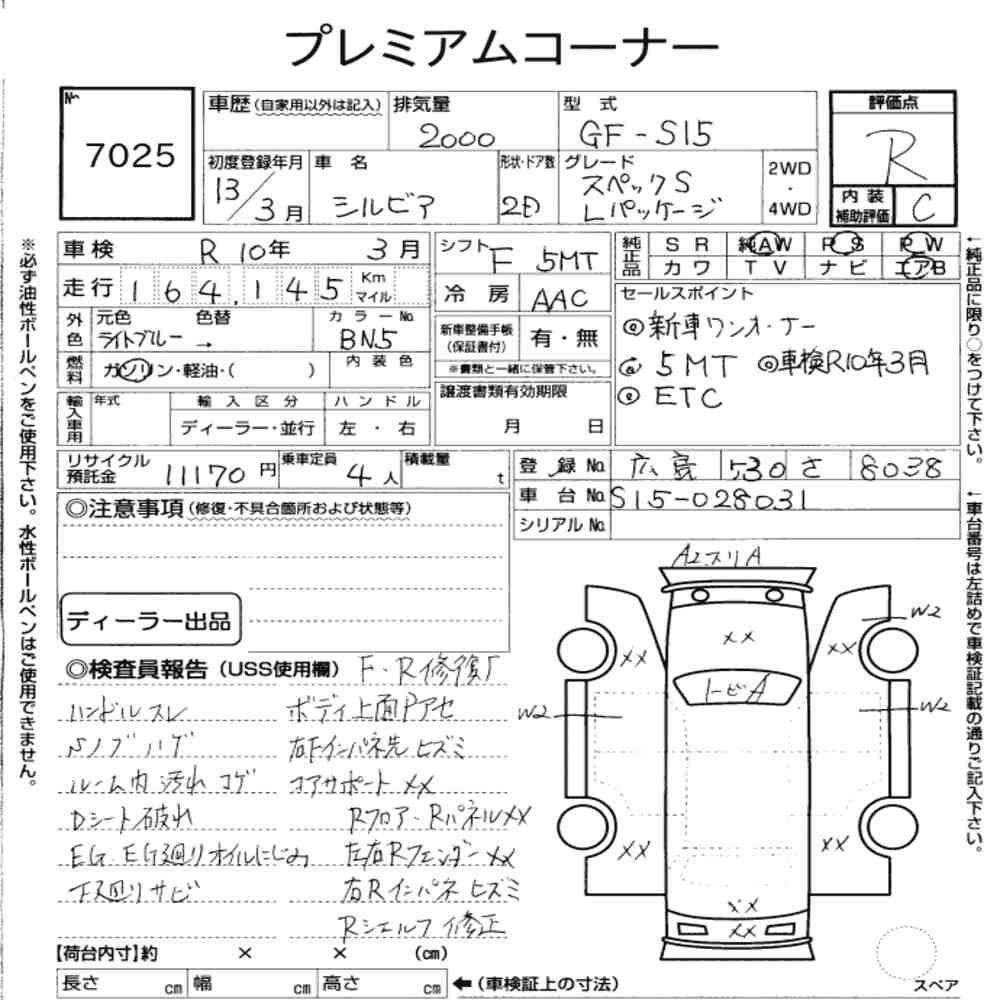 プレミアムコーナー
№
7025
車歴(自家用以外は記入)
排気量
2000
型 式
GF-S15
評価点
R
初度登録年月
13/3月
車 名
シルビア
形状・ドア数
2D
グレード
スペックS
Lパッケージ
2WD
・
4WD
内 装
補助評価
C
車検 R 10年 3月
シフト F 5MT
純正品
SR 純AW PS PW
カワ TV ナビ エアB
走行 164,145 Km
マイル
冷 房 AAC
セールスポイント
◎新車ワンオーナー
◎5MT ◎車検R10年3月
◎ETC
外色
元色 色替 カラーNo.
ライトブルー → BN5
新車整備手帳
(保証書付)
有・無
※書類と一緒に保管下さい。
燃料
ガソリン・軽油・( )
内 装 色
譲渡書類有効期限
月 日
輸入車用
年式
輸 入 区 分
ハ ン ド ル
ディーラー・並行
左 ・ 右
リサイクル
預託金
11170円
乗車定員
4人
積載量
t
登 録 No. 広島 530 さ 8038
車 台 No. S15-028031
シリアル No.
◎注意事項(修復・不具合箇所および状態等)
ディーラー出品
◎検査員報告(USS使用欄) F・R修復歴
ハンドルスレ
Sノブハゲ
ルーム内汚れ コゲ
Dシート破れ
EG・EG廻りオイルにじみ
下廻りサビ
ボディ上面Pアセ
右Fインパネ先ヒズミ
コアサポートXX
Rフロア・RパネルXX
左右RフェンダーXX
右Rインパネヒズミ
Rシェルフ修正
A2.スリA
XX
トビA
XX
XX
W2
W2
W2
XX
XX
XX
XX
【荷台内寸】約 × × (cm)
長さ cm 幅 cm 高さ cm
←(車検証上の寸法)
スペア
※必ず油性ボールペンをご使用下さい。水性ボールペンはご使用できません。
←純正品に限り○をつけて下さい。
←車台番号は左詰めで車検証記載の通りご記入下さい。